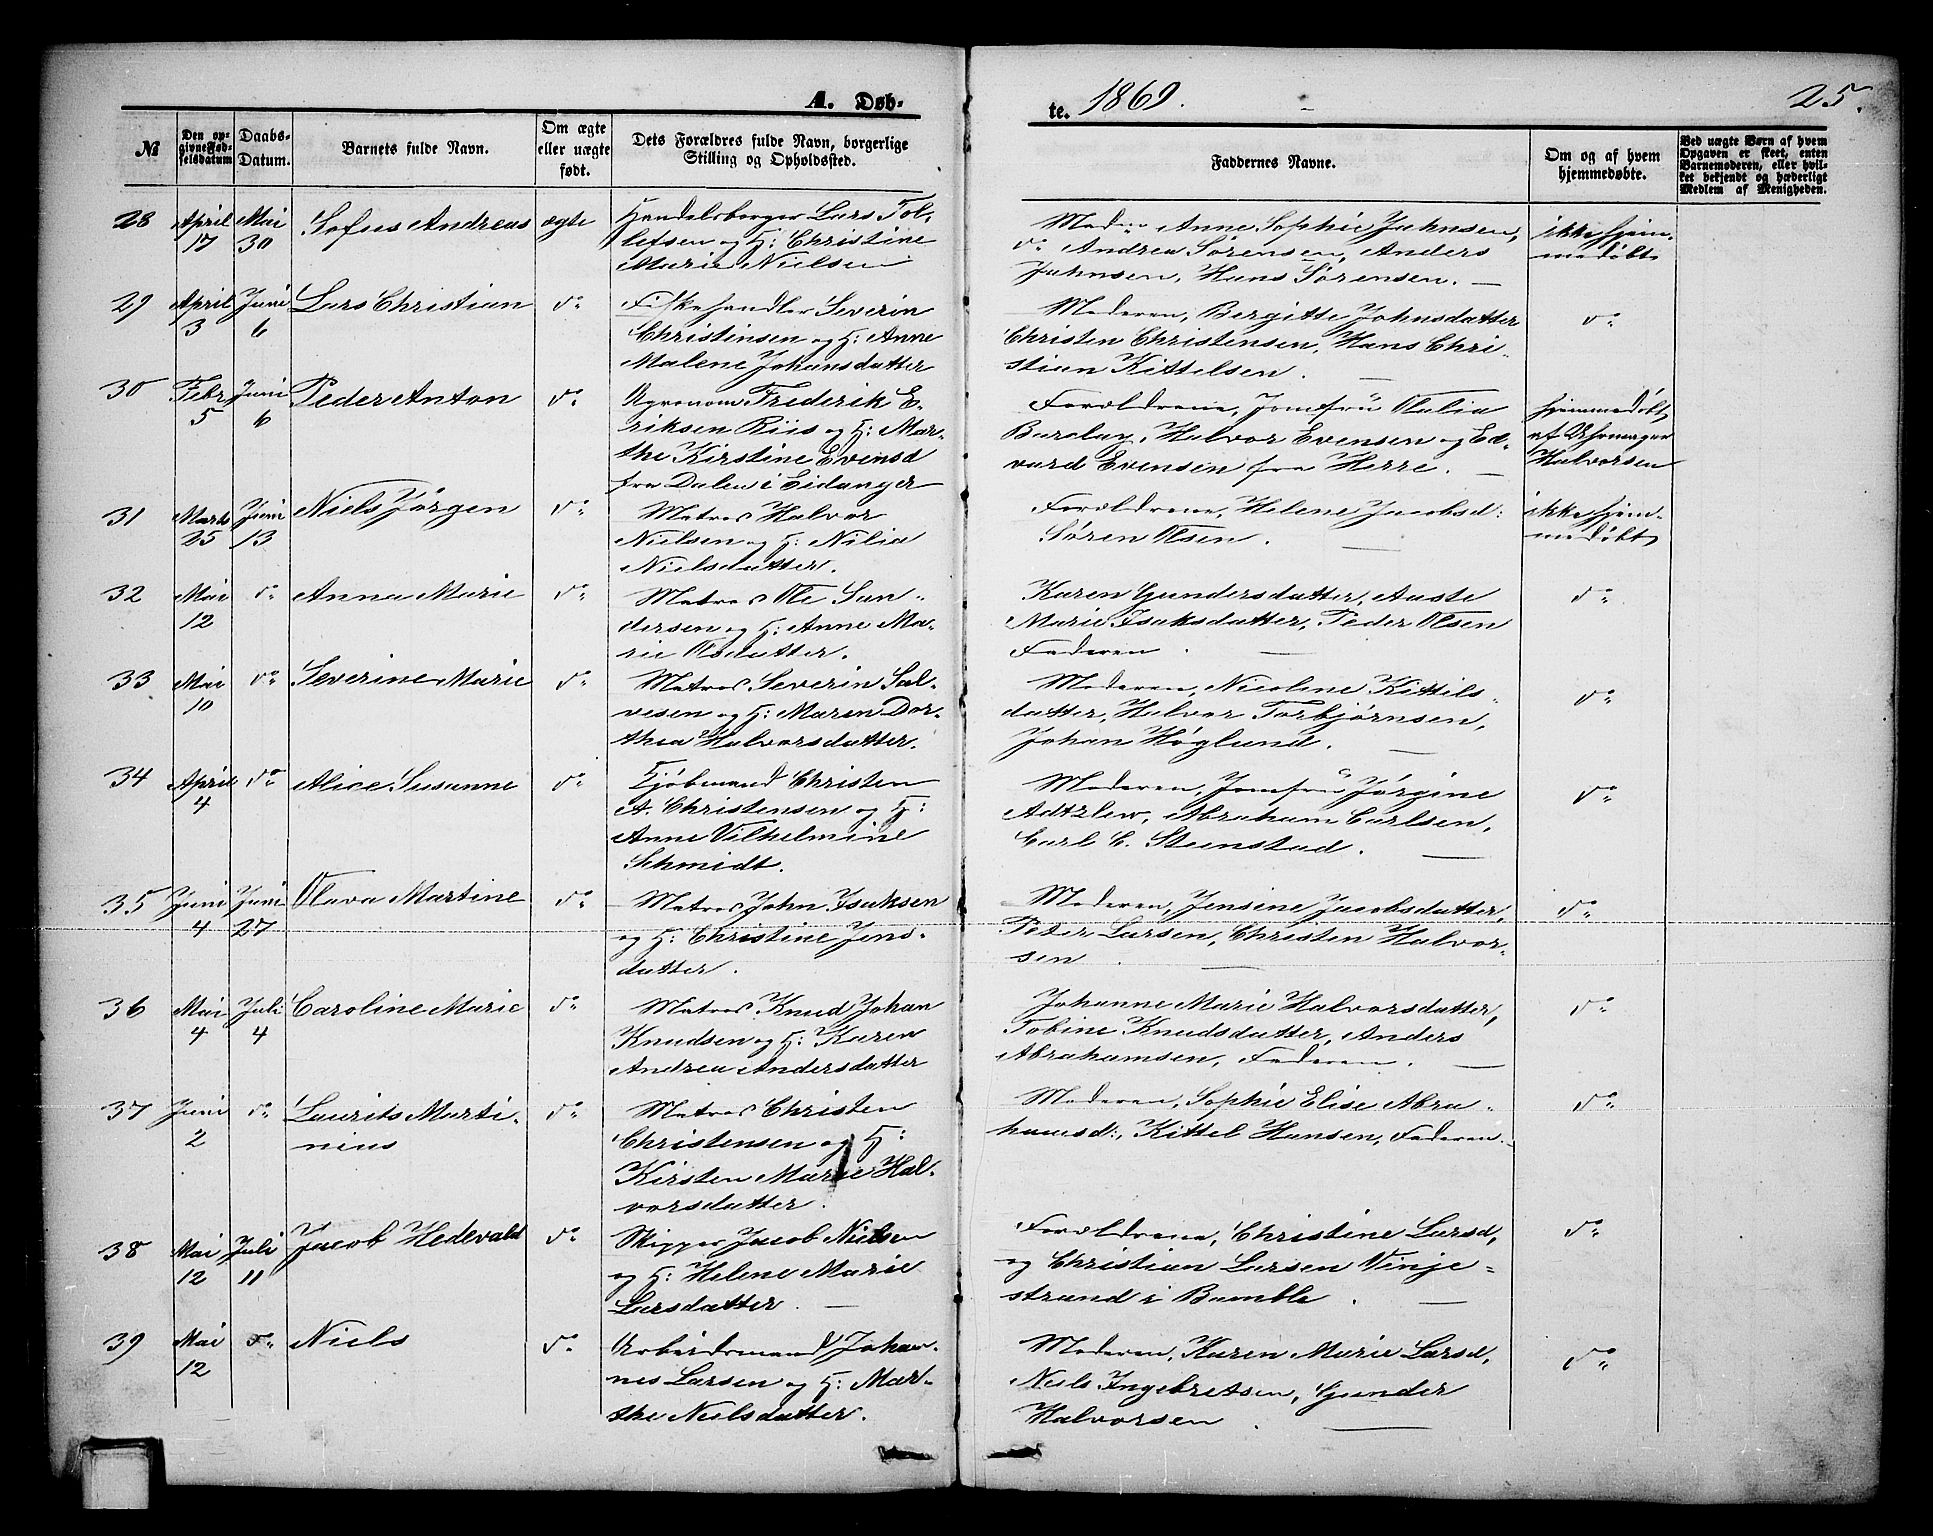 A. Døb-
te. 1869.
25.
№
Den op-
givne Fød-
selsdatum
Daabs-
Datum.
Barnets fulde Navn.
Om ægte
eller uægte
født.
Dets Forældres fulde Navn, borgerlige
Stilling og Opholdssted.
Faddernes Navne.
Om og af hvem
hjemmedøbte.
Ved uægte Børn af hvem
Opgaven er skeet, enten
Barnemoderen, eller hvil-
ket bekjendt og hæderligt
Medlem af Menigheden.
28 April 17 Mai 30 Sofus Andreas ægte
Handelsborger Lars Tol-
lefsen og H: Christine
Marie Nielsen
Anne Sophie Jahnsen,
do Andrea Sørensen, Anders
Jahnsen, Hans Sørensen. —
ikke hjem-
medøbt
29 April 3 Juni 6 Lars Christian do
Fiskehandler Severin
Christinsen og H: Anne
Malene Johansdatter
Moderen, Bergitte Johnsdatter
Christen Christensen, Hans Chri-
stian Kittelsen. —
do
30 Febr 5 Juni 6 Peder Anton do
Agronom Frederik E-
riksen Riis og H: Mar-
the Kirstine Evensd
fra Dalen i Eidanger
Forældrene, Jomfru Olalia
Barclay, Halvor Evensen og Ed-
vard Evensen fra Herre. —
hjemmedøbt
af Uhrmager
Halvorsen
31 Marts 25 Juni 13 Niels Jørgen do
Matros Halvor
Nielsen og H: Nilia
Nielsdatter.
Forældrene, Helene Jacobsd:
Søren Olsen. —
ikke hjem-
medøbt
32 Mai 12 do Anna Marie do
Matros Ole San-
dersen og H: Anne Ma-
rie Olsdatter.
Karen Gundersdatter, Aaste
Marie Isaksdatter, Peder Olsen
Faderen. —
do
33 Mai 10 do Severine Marie do
Matros Severin Sal-
vesen og H: Maren Dor-
thea Halvorsdatter.
Moderen, Nicoline Kittils-
datter, Halvor Torbjørnsen,
Johan Høglund. —
do
34 April 4 do Alice Susanne do
Kjøbmand Christen
A. Christensen og H:
Anne Vilhelmine
Schmidt.
Moderen, Jomfru Jørgine
Adtzlew, Abraham Carlsen,
Carl C. Stenstad. —
do
35 Juni 4 Juni 27 Olava Martine do
Matros John Isaksen
og H: Christine Jens-
datter.
Moderen, Jensine Jacobsdatter,
Peder Larsen, Christen Halvor-
sen. —
do
36 Mai 4 Juli 4 Caroline Marie do
Matros Knud Johan
Knudsen og H: Karen
Andrea Andersdatter
Johanne Marie Halvorsdatter,
Tobine Knudsdatter, Anders
Abrahamsen, Faderen. —
do
37 Juni 2 do Laurits Marti-
nius do
Matros Christen
Christensen og H:
Kirsten Marie Hal-
vorsdatter.
Moderen, Sophie Elise Abra-
hamsd:, Kittel Hansen, Faderen. -
do
38 Mai 12 Juli 11 Jacob Hedevald do
Skipper Jacob Nielsen
og H: Helene Marie
Larsdatter. —
Forældrene, Christine Larsd,
og Christian Larsen Vinje-
strand i Bamble. —
do
39 Mai 12 do Niels do
Arbeidsmand Johan-
nes Larsen og H: Mar-
the Nielsdatter.
Moderen, Karen Marie Larsd,
Niels Ingebretsen, Gunder
Halvorsen. —
do